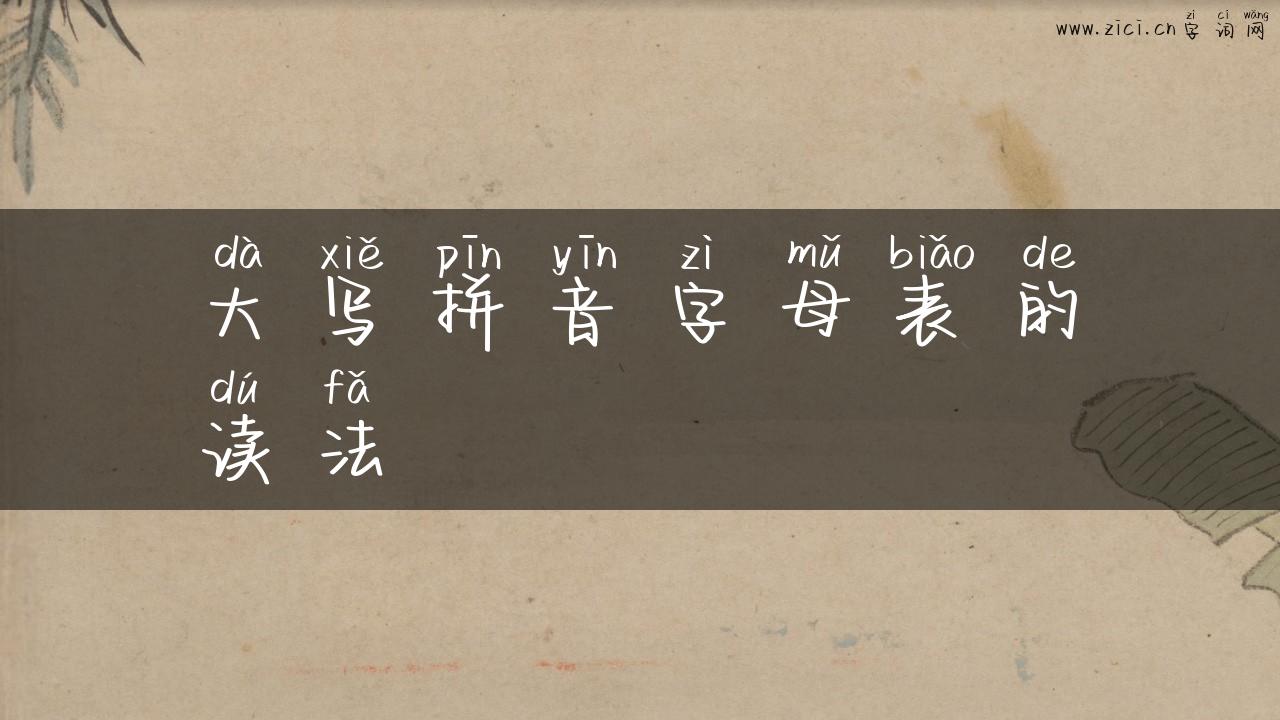 zì cí wǎng
www.zici.cn 字 词 网
dà xiě pīn yīn zì mǔ biǎo de
大 写 拼 音 字 母 表 的
dú fǎ
读 法